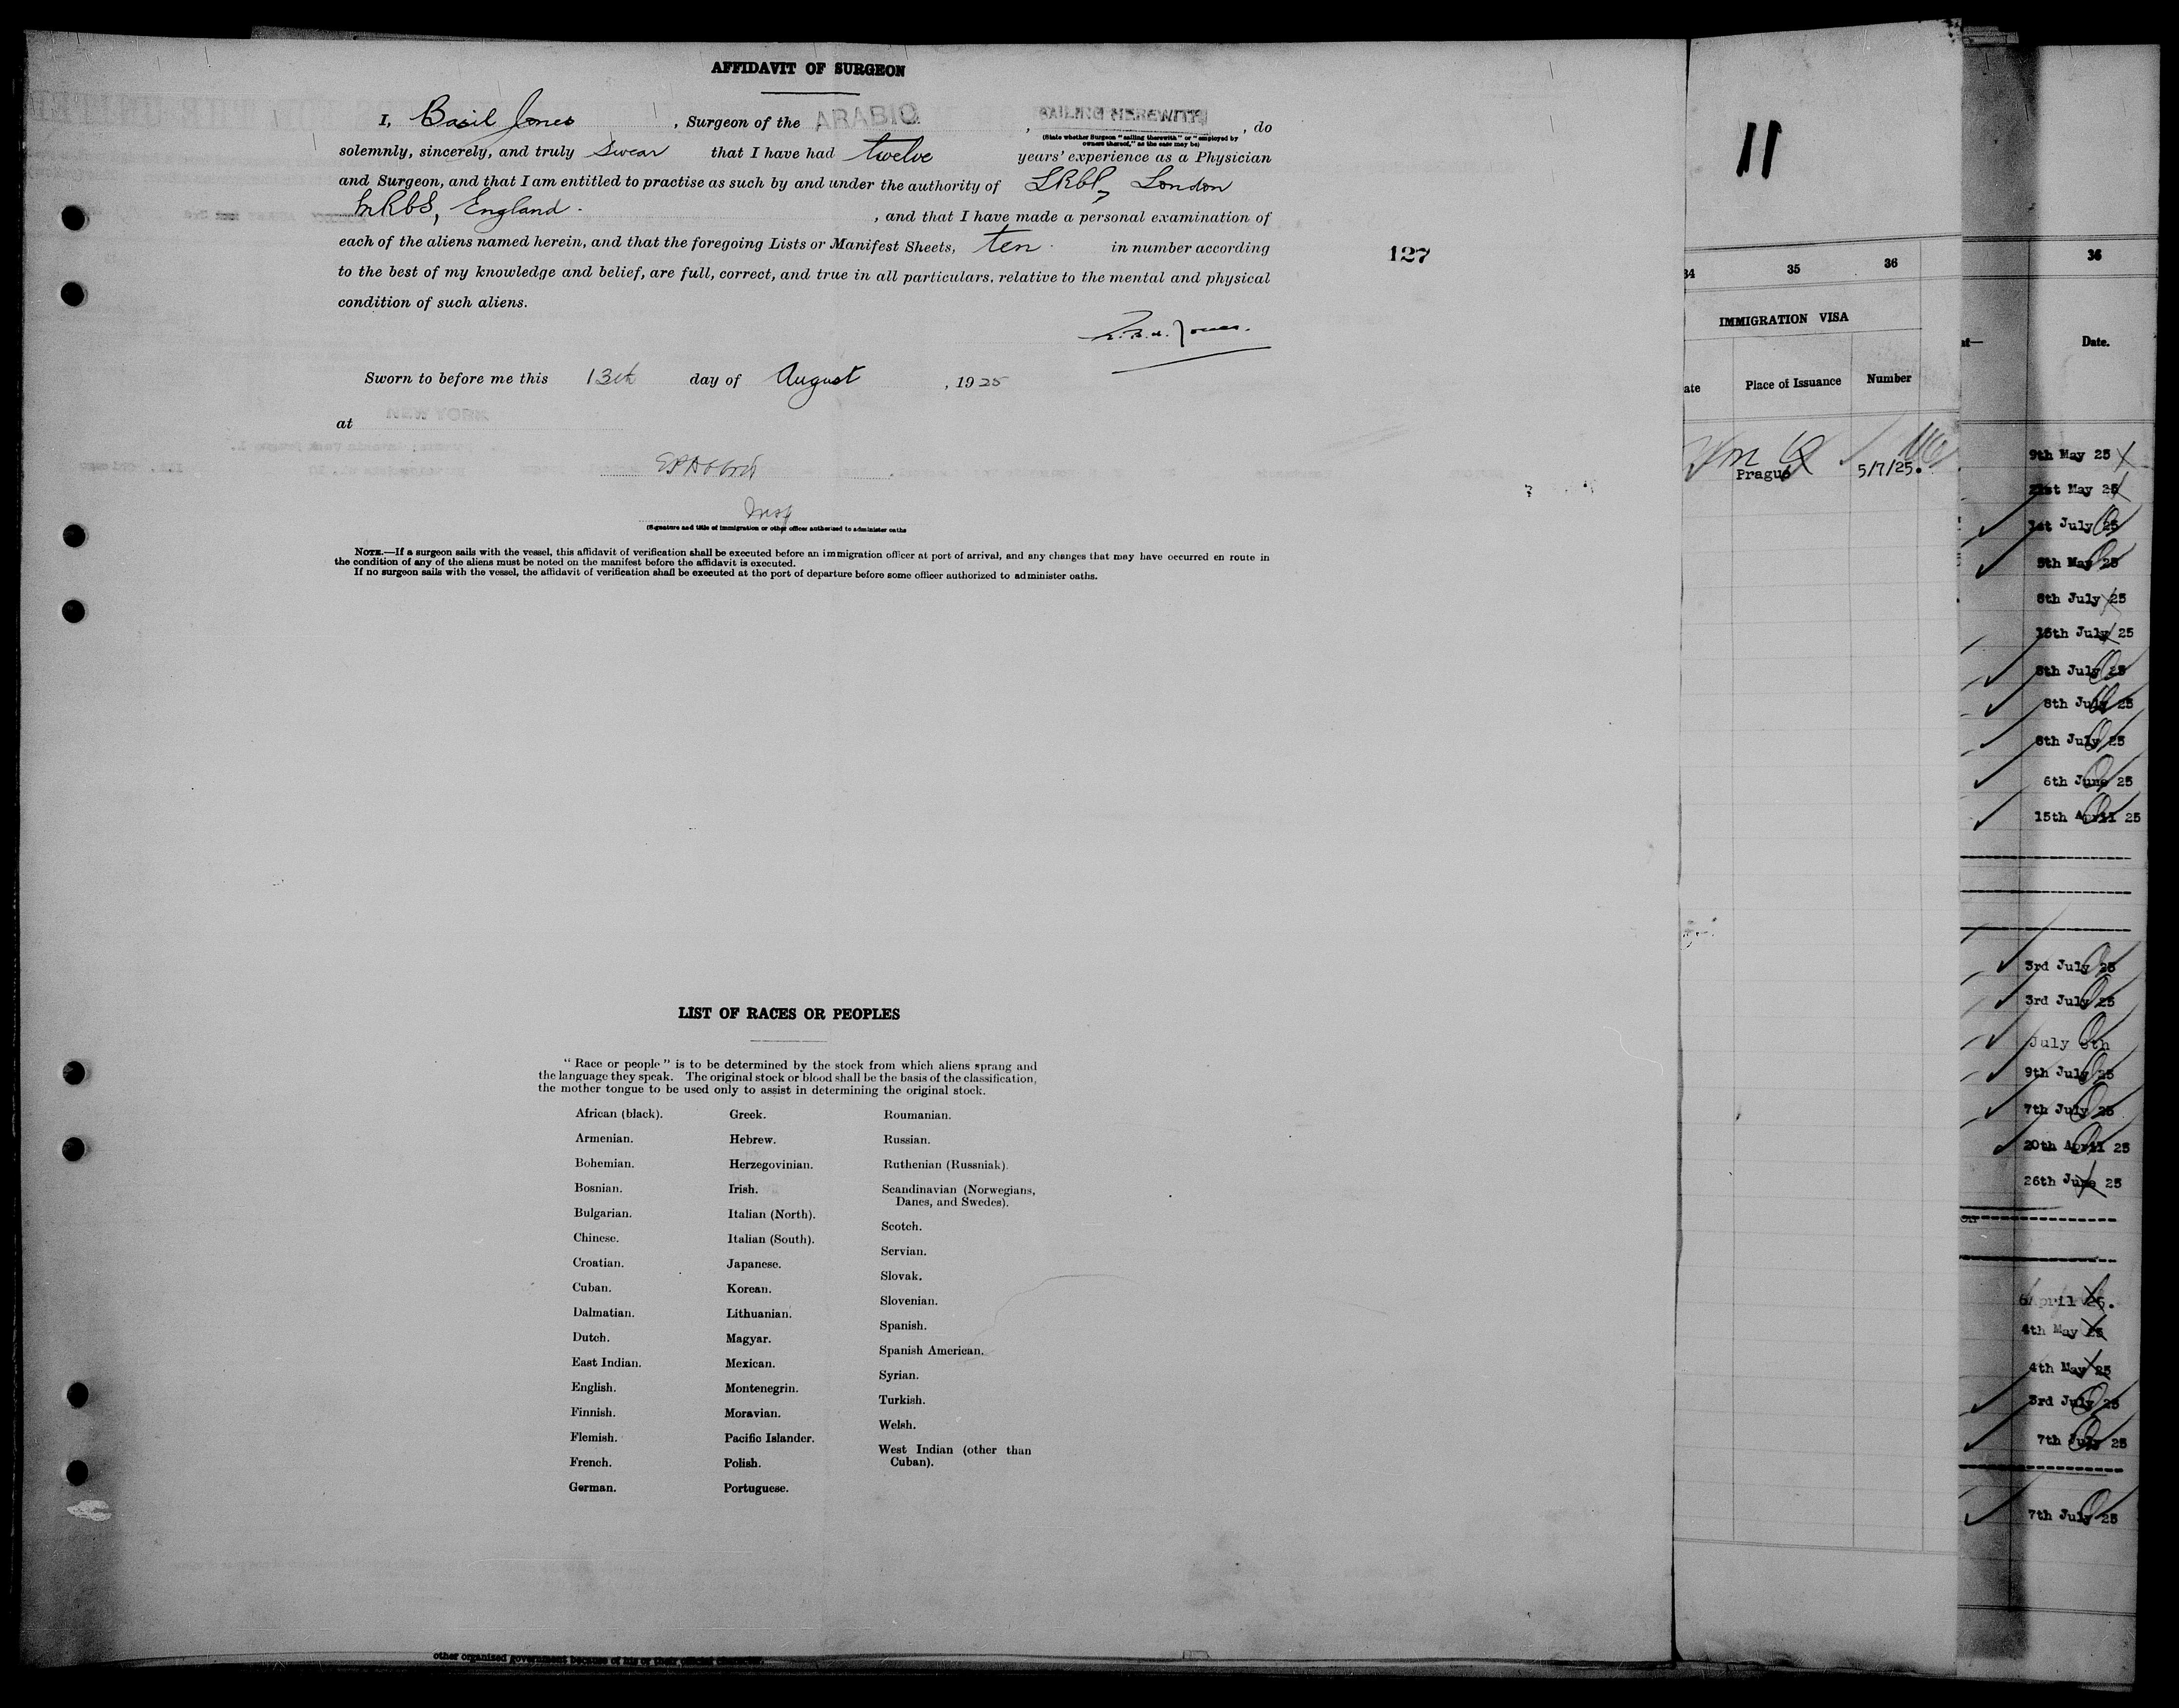 AFFIDAVIT OF SURGEON
I, Basil Jones , Surgeon of the ARABIC , SAILING HEREWITH , do
(State whether Surgeon "sailing therewith" or "employed by
owners thereof," as the case may be)
solemnly, sincerely, and truly swear that I have had twelve years' experience as a Physician
and Surgeon, and that I am entitled to practise as such by and under the authority of LRCP, London
MRCS, England. , and that I have made a personal examination of
each of the aliens named herein, and that the foregoing Lists or Manifest Sheets, ten in number according
to the best of my knowledge and belief, are full, correct, and true in all particulars, relative to the mental and physical
condition of such aliens.
Jones.
Sworn to before me this 13th day of August , 1925
at NEW YORK
Insp
(Signature and title of immigration or other officer authorised to administer oaths
NOTE.—If a surgeon sails with the vessel, this affidavit of verification shall be executed before an immigration officer at port of arrival, and any changes that may have occurred en route in
the condition of any of the aliens must be noted on the manifest before the affidavit is executed.
If no surgeon sails with the vessel, the affidavit of verification shall be executed at the port of departure before some officer authorized to administer oaths.
127
LIST OF RACES OR PEOPLES
"Race or people" is to be determined by the stock from which aliens sprang and
the language they speak. The original stock or blood shall be the basis of the classification,
the mother tongue to be used only to assist in determining the original stock.
African (black).
Armenian.
Bohemian.
Bosnian.
Bulgarian.
Chinese.
Croatian.
Cuban.
Dalmatian.
Dutch.
East Indian.
English.
Finnish.
Flemish.
French.
German.
Greek.
Hebrew.
Herzegovinian.
Irish.
Italian (North).
Italian (South).
Japanese.
Korean.
Lithuanian.
Magyar.
Mexican.
Montenegrin.
Moravian.
Pacific Islander.
Polish.
Portuguese.
Roumanian.
Russian.
Ruthenian (Russniak).
Scandinavian (Norwegians,
Danes, and Swedes).
Scotch.
Servian.
Slovak.
Slovenian.
Spanish.
Spanish American.
Syrian.
Turkish.
Welsh.
West Indian (other than
Cuban).
other organized government because of his or their official character.
11
34 35 36
IMMIGRATION VISA
ate Place of Issuance Number
Prague 5/7/25.
36
Date.
9th May 25
21st May 25
1st July 25
5th May 25
8th July 25
15th July 25
8th July 25
8th July 25
8th July 25
6th June 25
15th April 25
3rd July 25
3rd July 25
July 8th
9th July 25
7th July 25
20th April 25
26th June 25
on
6 April 25.
4th May 25
4th May 25
3rd July 25
7th July 25
7th July 25